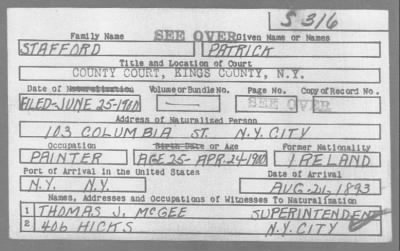 S 316
Family Name SEE OVER Given Name or Names
STAFFORD PATRICK
Title and Location of Court
COUNTY COURT, KINGS COUNTY, N.Y.
Date of Naturalization Volume or Bundle No. Page No. Copy of Record No.
FILED-JUNE 25-1900 — SEE OVER
Address of Naturalized Person
103 COLUMBIA ST. N.Y. CITY
Occupation Birth Date or Age Former Nationality
PAINTER AGE 25- APR. 24-1900 IRELAND
Port of Arrival in the United States Date of Arrival
N.Y. N.Y. AUG-20-1893
Names, Addresses and Occupations of Witnesses To Naturalization
1 THOMAS J. McGEE SUPERINTENDENT
2 406 HICKS N.Y. CITY